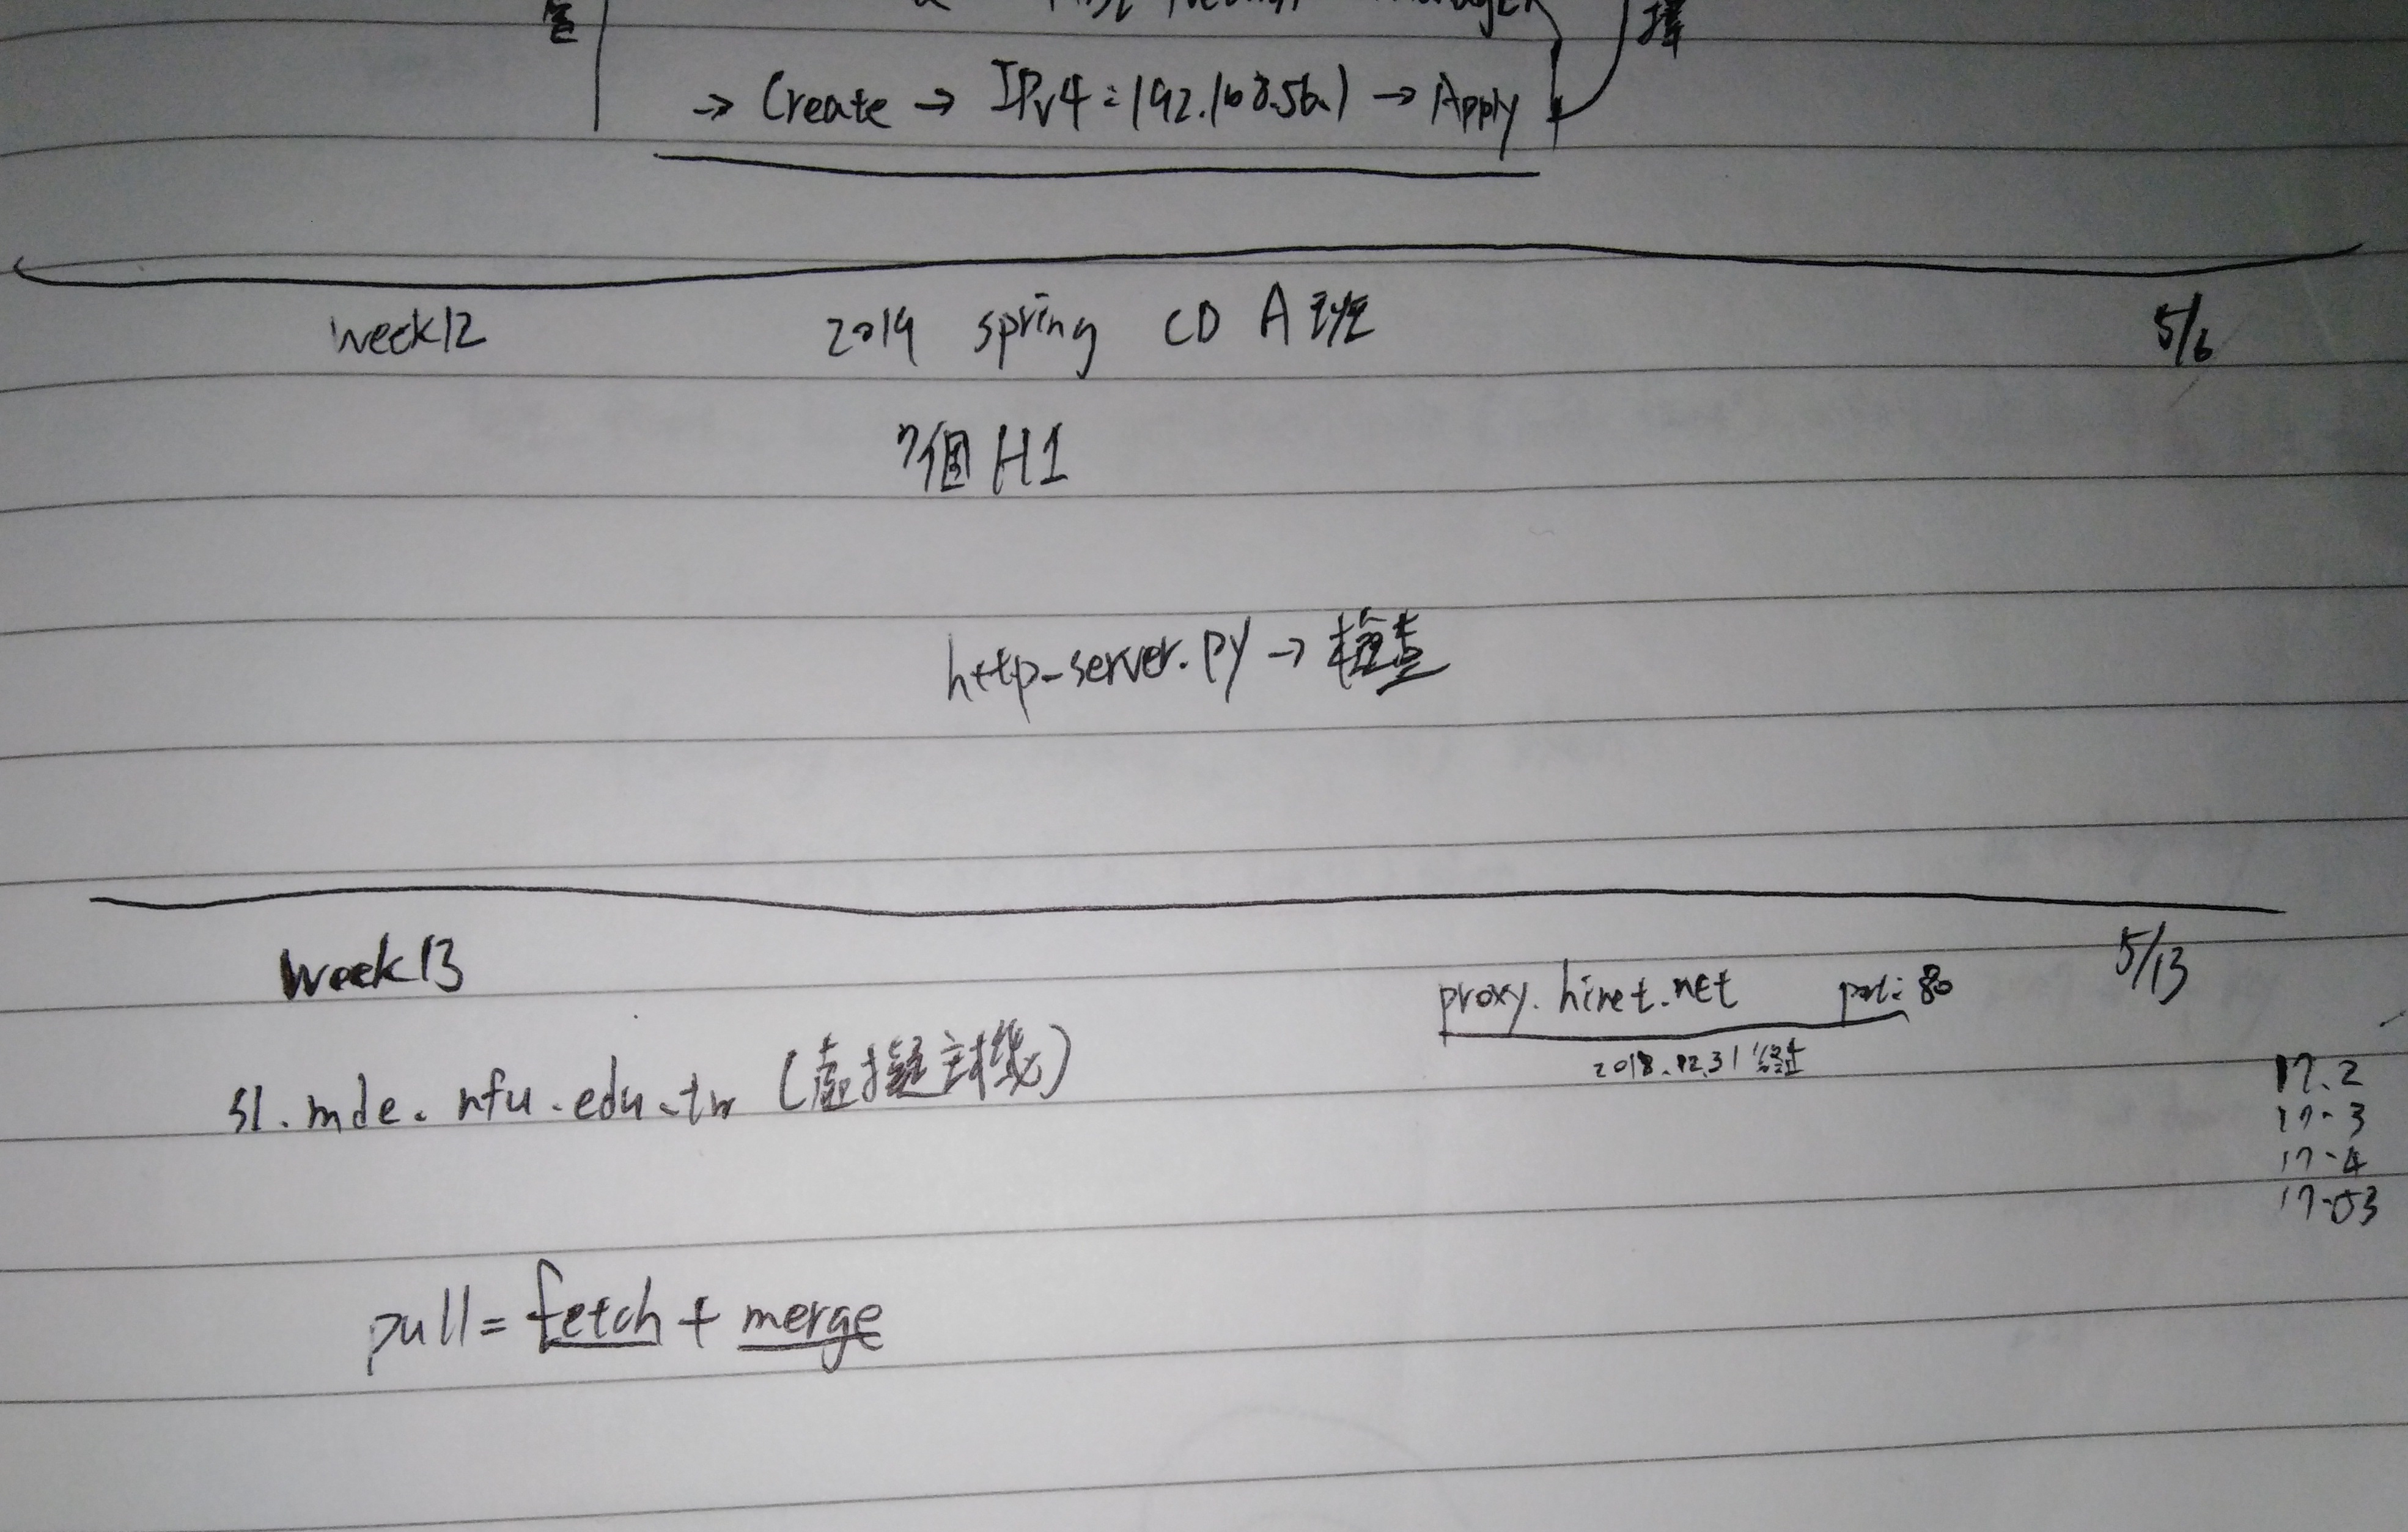 管 Host Network Manager 擇
→ Create → IPv4:192.168.56.1 → Apply
week12 2019 spring CD A班 5/6
7個H1
http-server.py → 檢查
week13 5/13
proxy.hinet.net port:80
2018.12.31
s1.mde.nfu.edu.tw (虛擬主機)
17.2
17-3
17-4
17-53
pull = fetch + merge